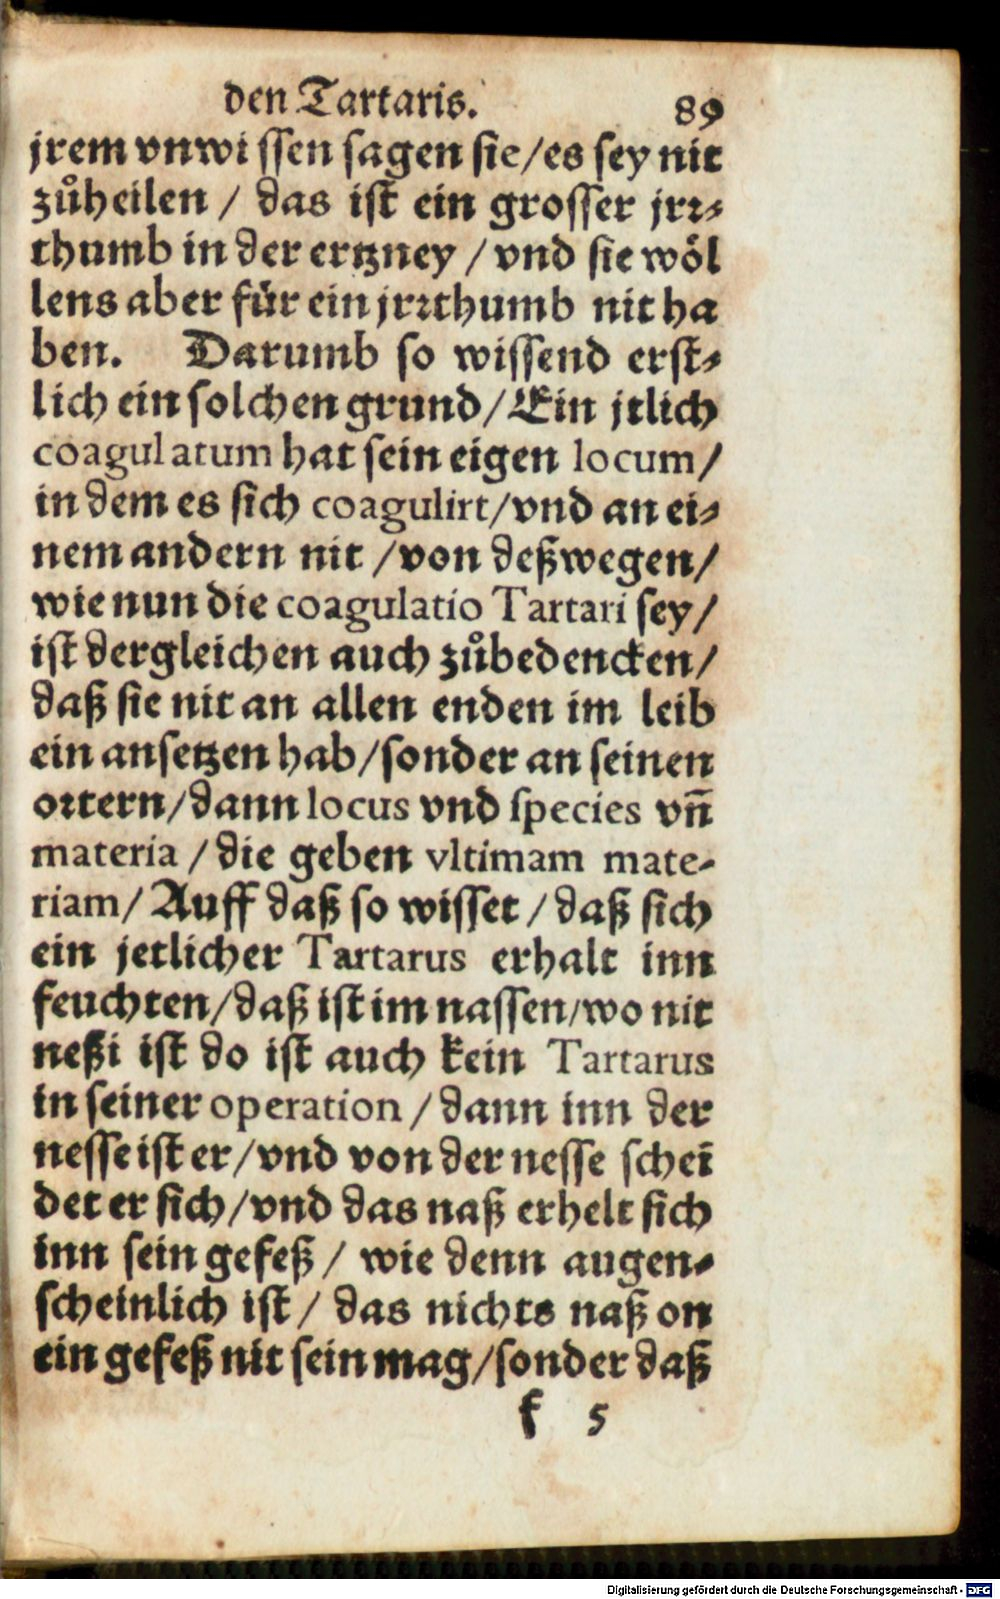 den Tartaris. 89
jrem vnwissen sagen sie/es sey nit
zůheilen / das ist ein grosser jrr-
thumb in der ertzney / vnd sie wöl
lens aber für ein jrrthumb nit ha
ben. Darumb so wissend erst-
lich ein solchen grund/Ein jtlich
coagulatum hat sein eigen locum/
in dem es sich coagulirt/vnd an ei-
nem andern nit /von deßwegen/
wie nun die coagulatio Tartari sey/
ist dergleichen auch zůbedencken/
daß sie nit an allen enden im leib
ein ansetzen hab/sonder an seinen
ortern/dann locus vnd species vñ
materia /die geben vltimam mate-
riam/Auff daß so wisset /daß sich
ein jetlicher Tartarus erhalt inn
feuchten/daß ist im nassen/wo nit
neßi ist do ist auch kein Tartarus
in seiner operation /dann inn der
nesse ist er/vnd von der nesse scheī
det er sich/vnd das naß erhelt sich
inn sein gefeß / wie denn augen-
scheinlich ist/ das nichts naß on
ein gefeß nit sein mag/sonder daß
f 5
Digitalisierung gefördert durch die Deutsche Forschungsgemeinschaft - DFG